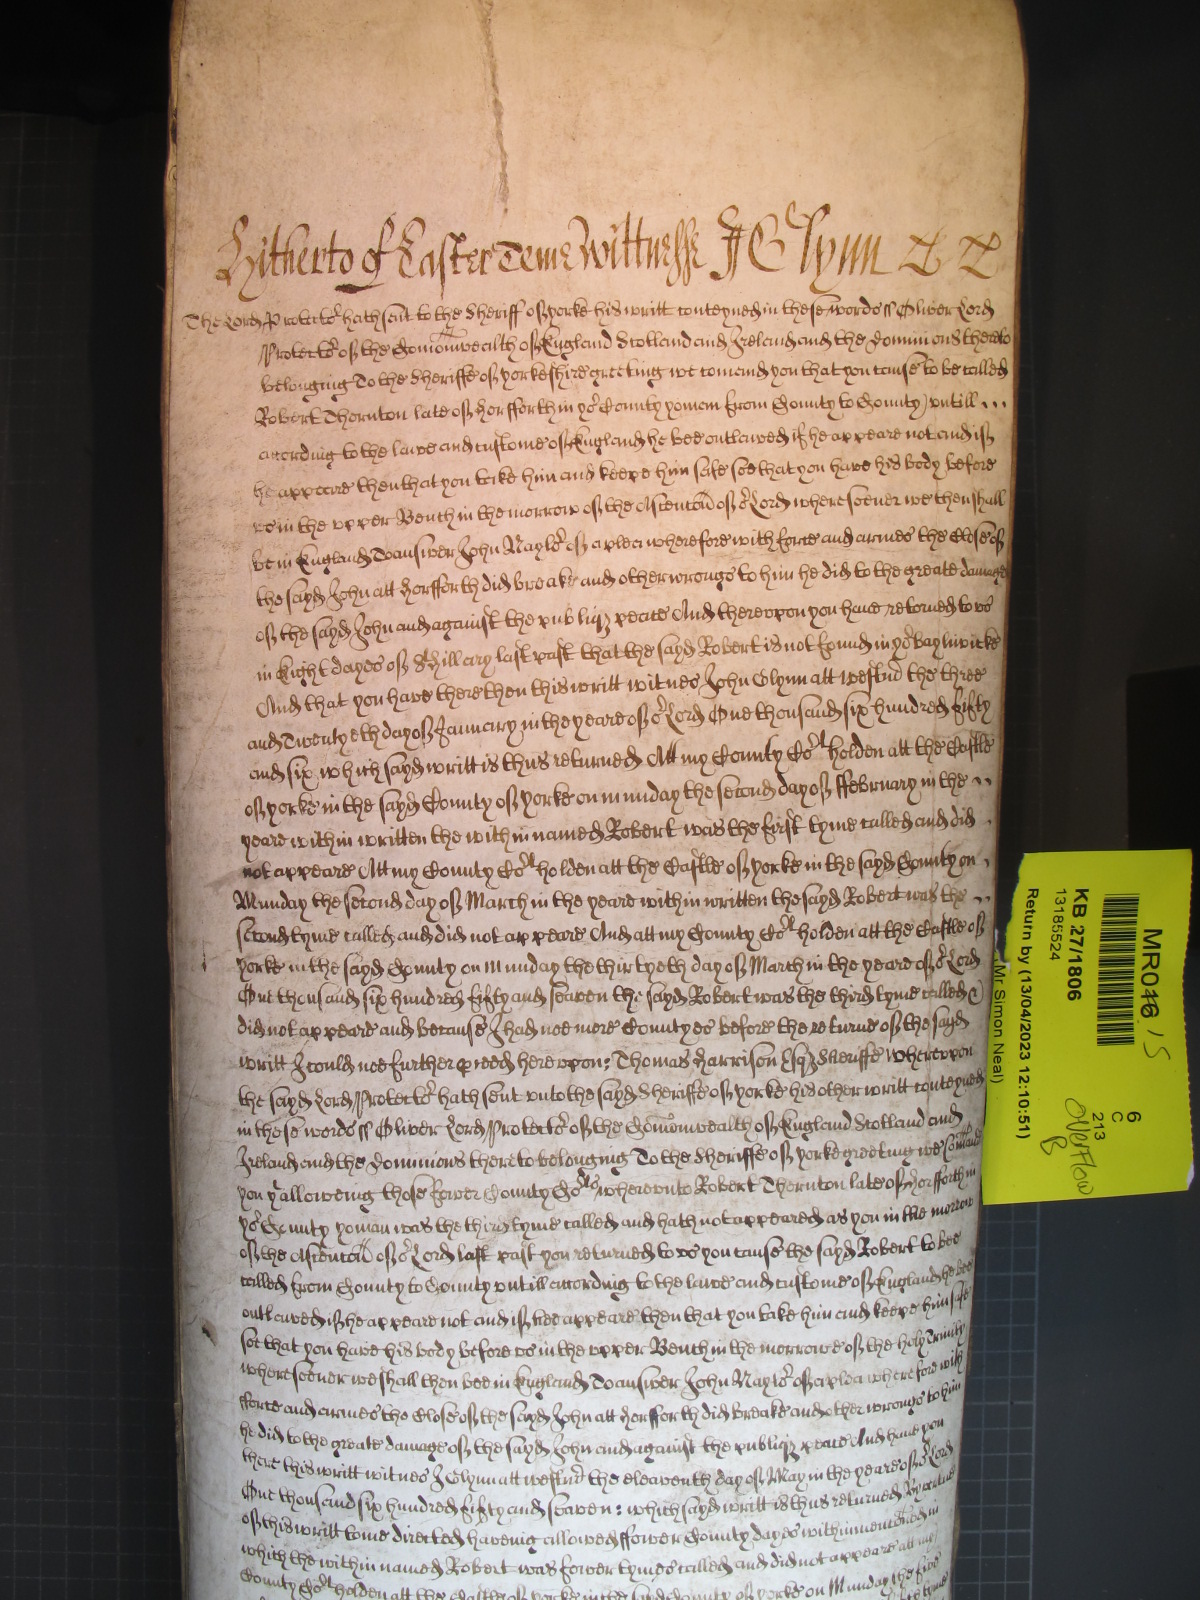 Hitherto of Easter Terme Wittnesse J Glynn
The Lord Protector hath sent to the Sheriff of yorke his writt conteyned in these words ss Oliver Lord
Protector of the Comonwealth of England Scotland and Ireland and the Dominions thereto
belonging To the Sheriffe of yorkeshire greeting we comend you that you cause to be called
Robert Thornton late of Horfforth in yor County yoman from County to County untill ...
according to the lawe and custome of England he bee outlawed if he appeare not and if
he appeare then that you take him and keepe him safe soe that you have his body before
us in the upper Bench in the morrow of the Ascencon of or Lord wheresoever we then shall
be in England To answer John Naylor of a plea wherefore with force and armes the Close of
the sayd John att Horfforth did breake and other wrongs to him he did to the great damage
of the sayd John and against the publiq peace And thereupon you have retorned to us
in Eight dayes of St Hillary last past that the sayd Robert is not found in yor Baylиwicke
And that you have there then this writt witnes John Glynn att Westmr the three
and Twentyeth day of January in the yeare of or Lord One thousand six hundred fifty
and six which sayd writt is thus returned Att my County Cort holden att the Castle
of yorke in the sayd County of yorke on munday the second day of ffebruary in the ..
yeare within written the within named Robert was the first tyme called and did .
not appeare Att my County Cort holden att the Castle of yorke in the sayd County on .
Munday the second day of March in the yeare within written the sayd Robert was the ..
second tyme called and did not appeare And att my County Cort holden att the Castle of
yorke in the sayd County on munday the thirtyeth day of March in the yeare of or Lord
One thousand six hundred fifty and seaven the sayd Robert was the third tyme called &
did not appeare and because I had noe more Countyes before the returne of the sayd
writt I could noe further pceed hereupon: Thomas Harrison Esqr Sheriffe whereupon
the sayd Lord Protector hath sent unto the sayd Sheriffe of yorke his other writt conteyned
in these words ss Oliver Lord Protector of the Comonwealth of England Scotland and
Ireland and the Dominions thereto belonging To the Sheriffe of yorke greeting we Comand
you yt allowing those fower County Corts whereunto Robert Thornton late of Horfforth in
yor County yoman was the third tyme called and hath not appeared as you in the morrow
of the Ascencon of or Lord last past you returned to us you cause the sayd Robert to bee
called from County to County untill according to the lawe and custome of England he bee
outlawed if he appeare not and if hee appeare then that you take him and keepe him safe
soe that you have his body before us in the upper Bench in the morrowe of the holy Trinity
wheresoever we shall then bee in England To answer John Naylor of a plea wherefore with
fforce and armes the Close of the sayd John att Horfforth did breake and other wrongs to him
he did to the greate damage of the sayd John and against the publiq peace And have you
there this writt witnes J Glynn att Westmr the eleaventh day of May in the yeare of or Lord
One thousand six hundred fifty and seaven: which sayd writt is thus returned By vertue
of this writt to me directed haveing allowed ffower County dayes within menconed in
which the within named Robert was fower tymes called and did not appeare att my
County Cort holden att the Castle of yorke in the sayd County of yorke on Munday the five
MR016 / S
KB 27/1806
13185524
Return by (13/04/2023 12:10:51)
(Mr Simon Neal)
6
C
213
Overflow
B